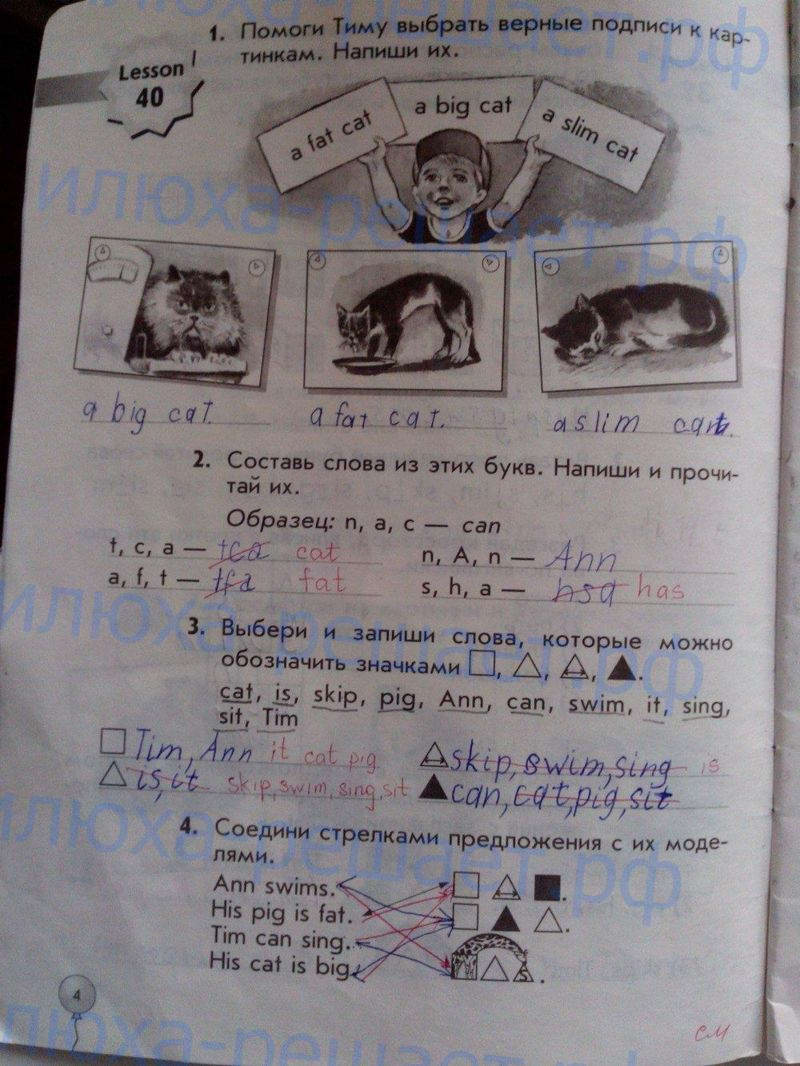 1. Помоги Тиму выбрать верные подписи к кар-
тинкам. Напиши их.
Lesson
40
a fat cat
a big cat
a slim cat
илюха-решает.рф
a big cat.
a fat cat.
a slim cat.
2. Составь слова из этих букв. Напиши и прочи-
тай их.
Образец: n, a, c — can
t, c, a — tca cat
n, A, n — Ann
a, f, t — tfa fat
s, h, a — hsa has
илюха-решает.рф
3. Выбери и запиши слова, которые можно
обозначить значками □, △, ▲.
cat, is, skip, pig, Ann, can, swim, it, sing,
sit, Tim
Tim, Ann it cat pig
skip, swim, sing is
is, it skip, swim, sing, sit
can, cat, pig, sit
илюха-решает.рф
4. Соедини стрелками предложения с их моде-
лями.
Ann swims.
His pig is fat.
Tim can sing.
His cat is big.
s
4
см
илюха-решает.рф